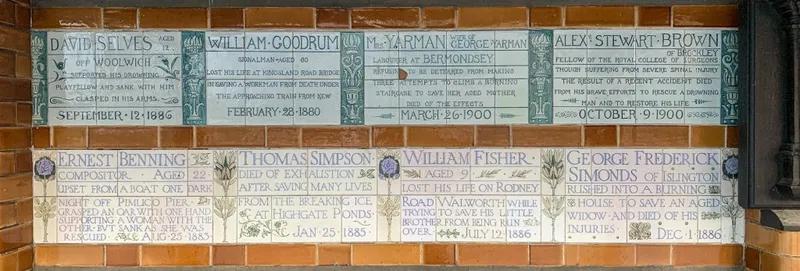 DAVID SELVES AGED 12
OFF WOOLWICH
SUPPORTED HIS DROWNING
PLAYFELLOW AND SANK WITH HIM
CLASPED IN HIS ARMS.
SEPTEMBER·12·1886
WILLIAM·GOODRUM
SIGNALMAN·AGED 60
LOST HIS LIFE AT KINGSLAND ROAD BRIDGE
IN SAVING A WORKMAN FROM DEATH UNDER
THE APPROACHING TRAIN FROM KEW
FEBRUARY·28·1880
MRS YARMAN WIFE OF GEORGE YARMAN
LABOURER AT BERMONDSEY
REFUSING TO BE DETERRED FROM MAKING
THREE ATTEMPTS TO CLIMB A BURNING
STAIRCASE TO SAVE HER AGED MOTHER
DIED OF THE EFFECTS
MARCH·26·1900
ALEXR STEWART·BROWN
OF BROCKLEY
FELLOW OF THE ROYAL COLLEGE OF SURGEONS
THOUGH SUFFERING FROM SEVERE SPINAL INJURY
THE RESULT OF A RECENT ACCIDENT DIED
FROM HIS BRAVE EFFORTS TO RESCUE A DROWNING
MAN AND TO RESTORE HIS LIFE
OCTOBER·9·1900
ERNEST BENNING
COMPOSITOR AGED 22
UPSET FROM A BOAT ONE DARK
NIGHT OFF PIMLICO PIER
GRASPED AN OAR WITH ONE HAND
SUPPORTING A WOMAN WITH THE
OTHER BUT SANK AS SHE WAS
RESCUED AUG 25·1883
THOMAS SIMPSON
DIED OF EXHAUSTION
AFTER SAVING MANY LIVES
FROM THE BREAKING ICE
AT HIGHGATE PONDS
JAN 25·1885
WILLIAM FISHER
AGED 9
LOST HIS LIFE ON RODNEY
ROAD WALWORTH WHILE
TRYING TO SAVE HIS LITTLE
BROTHER FROM BEING RUN
OVER JULY 12·1886
GEORGE FREDERICK
SIMONDS OF ISLINGTON
RUSHED INTO A BURNING
HOUSE TO SAVE AN AGED
WIDOW AND DIED OF HIS
INJURIES DEC 1·1886